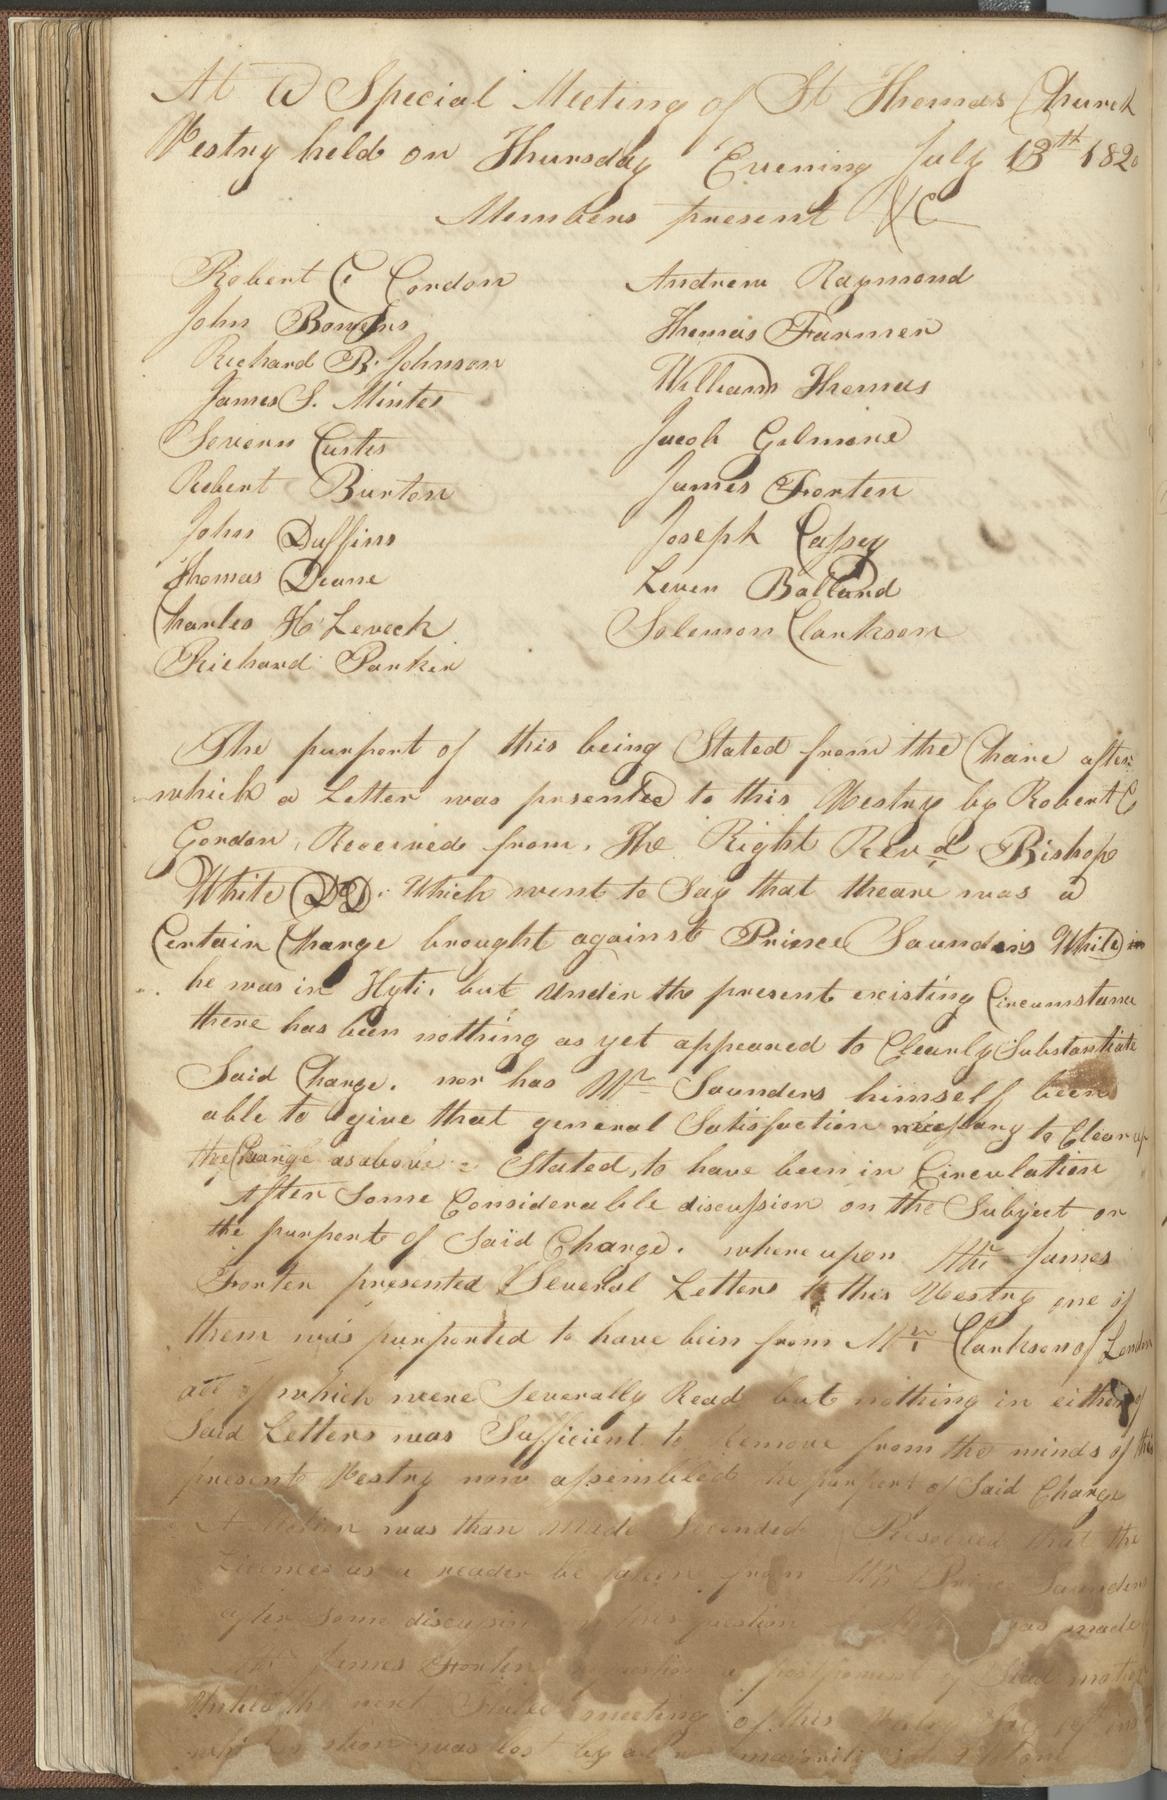 At a Special Meeting of St Thomas Church
Vestry held on Thursday Evening July 13th 1820
Members present &C
Robert C. Gordon
John Bowers
Richard B. Johnson
James S. Minter
Severn Custes
Robert Burton
John Duffins
Thomas Deane
Charles H Leveck
Richard Parkin
Andrew Raymond
Thomas Farmer
William Thomas
Jacob Gilmore
James Forten
Joseph Cassey
Leven Ballard
Solomon Clarkson
The purport of this being Stated from the Chare after
which a Letter was presented to this Vestry by Robert C
Gordon, Received from, The Right Revd Bishop
White DD: Which went to Say that theare was a
Certain Charge brought against Prince Saunders While in
he was in Hyti, but under the present existing Circumstance
there has been nothing as yet appeared to Clearly Substantiate
Said Charge. nor has Mr Saunders himself been
able to give that general Satisfaction necessary to Clear up
the Charge as above = Stated, to have been in Circulation
After Some Considerable discussion on the Subject or
the purport of Said Charge. where upon Mr James
Forten presented Several Letters to this Vestry one of
them was purported to have bein from Mr Clarkson of London
all of which were Severally Read but nothing in either of
Said Letters was Sufficient to remove from the minds of this
present Vestry now assembled the purport of Said Charge
A Motion was than made Seconded Resolved that the
Licence as a reader be taken from Mr Prince Saunders
after Some discussion on this question was made
Mr James Forten a postponement of Said matter
until the next Stated meeting of this Vestry
which was lost by a majority